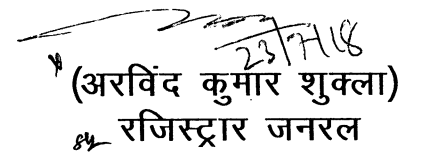 23/7/18
(अरविंद कुमार शुक्ला)
रजिस्ट्रार जनरल